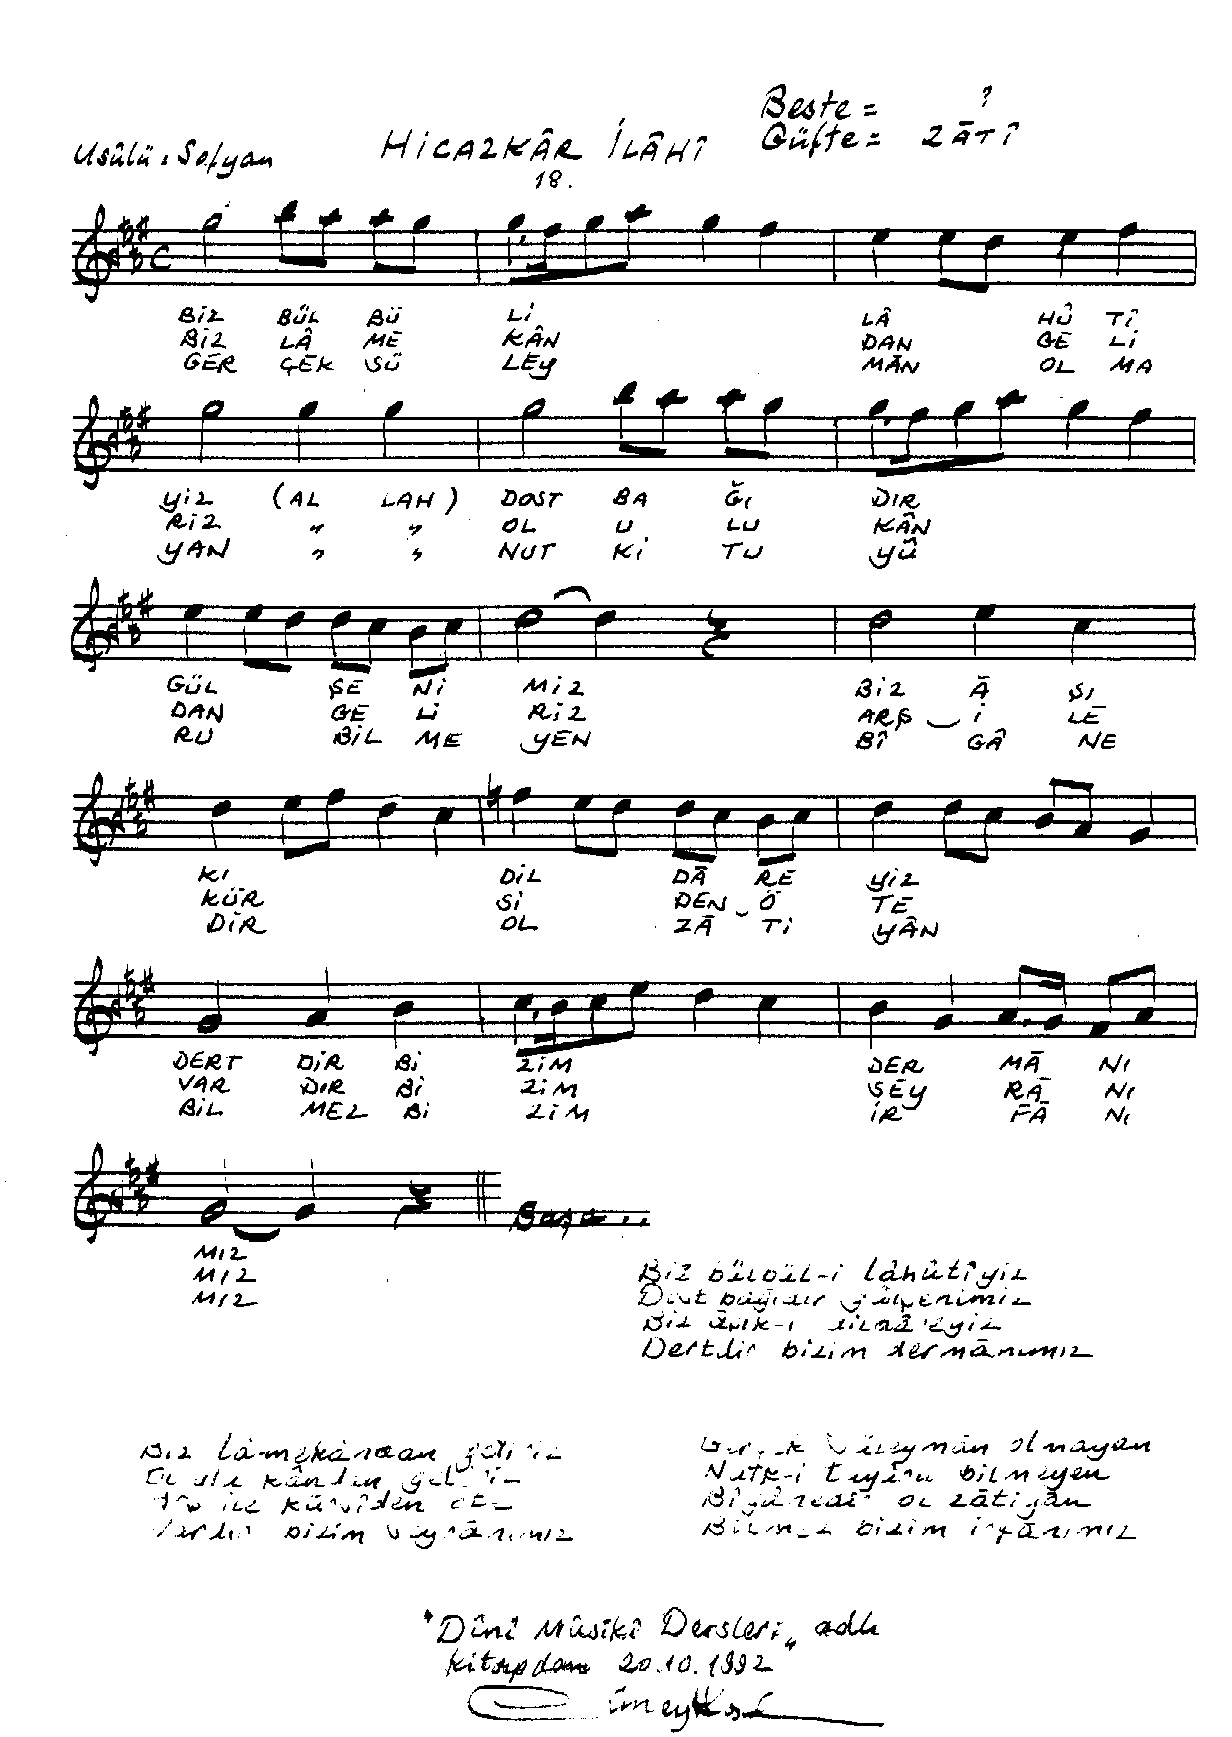 Beste = ?
Usûlü : Sofyan HİCAZKÂR İLÂHÎ Güfte = ZÂTÎ
18.
BİZ BÜL BÜ Lİ LÂ HÛ TÎ
BİZ LÂ ME KÂN DAN GE Lİ
GER ÇEK SÜ LEY MÂN OL MA
YİZ (AL LAH) DOST BA ĞI DIR
RİZ " " OL U LU KÂN
YAN " " NUT Kİ TU YÛ
GÜL ŞE Nİ MİZ BİZ Â ŞI
DAN GE Lİ RİZ ARŞ İ LE
RU BİL ME YEN BÎ GÂ NE
KI DİL DÂ RE YİZ
KÜR Sİ DEN Ö TE
DİR OL ZÂ Tİ YÂN
DERT DİR Bİ ZİM DER MÂ NI
VAR DIR Bİ ZİM SEY RÂ NI
BİL MEZ Bİ ZİM İR FÂ NI
Başa..
MIZ
MIZ
MIZ
Biz bülbül-i lâhûtîyiz
Dost bağıdır gülşenimiz
Biz âşık-ı dildâreyiz
Dertdir bizim dermânımız
Biz lâmekândan geliriz
Ol ulu kândan geliriz
Arş ile kürsîden öte
Vardır bizim seyrânımız
Gerçek Süleymân olmayan
Nutk-i tuyûru bilmeyen
Bîgânedir ol zâtiyân
Bilmez bizim irfânımız
"Dînî Mûsikî Dersleri" adlı
kitapdan 20.10.1992